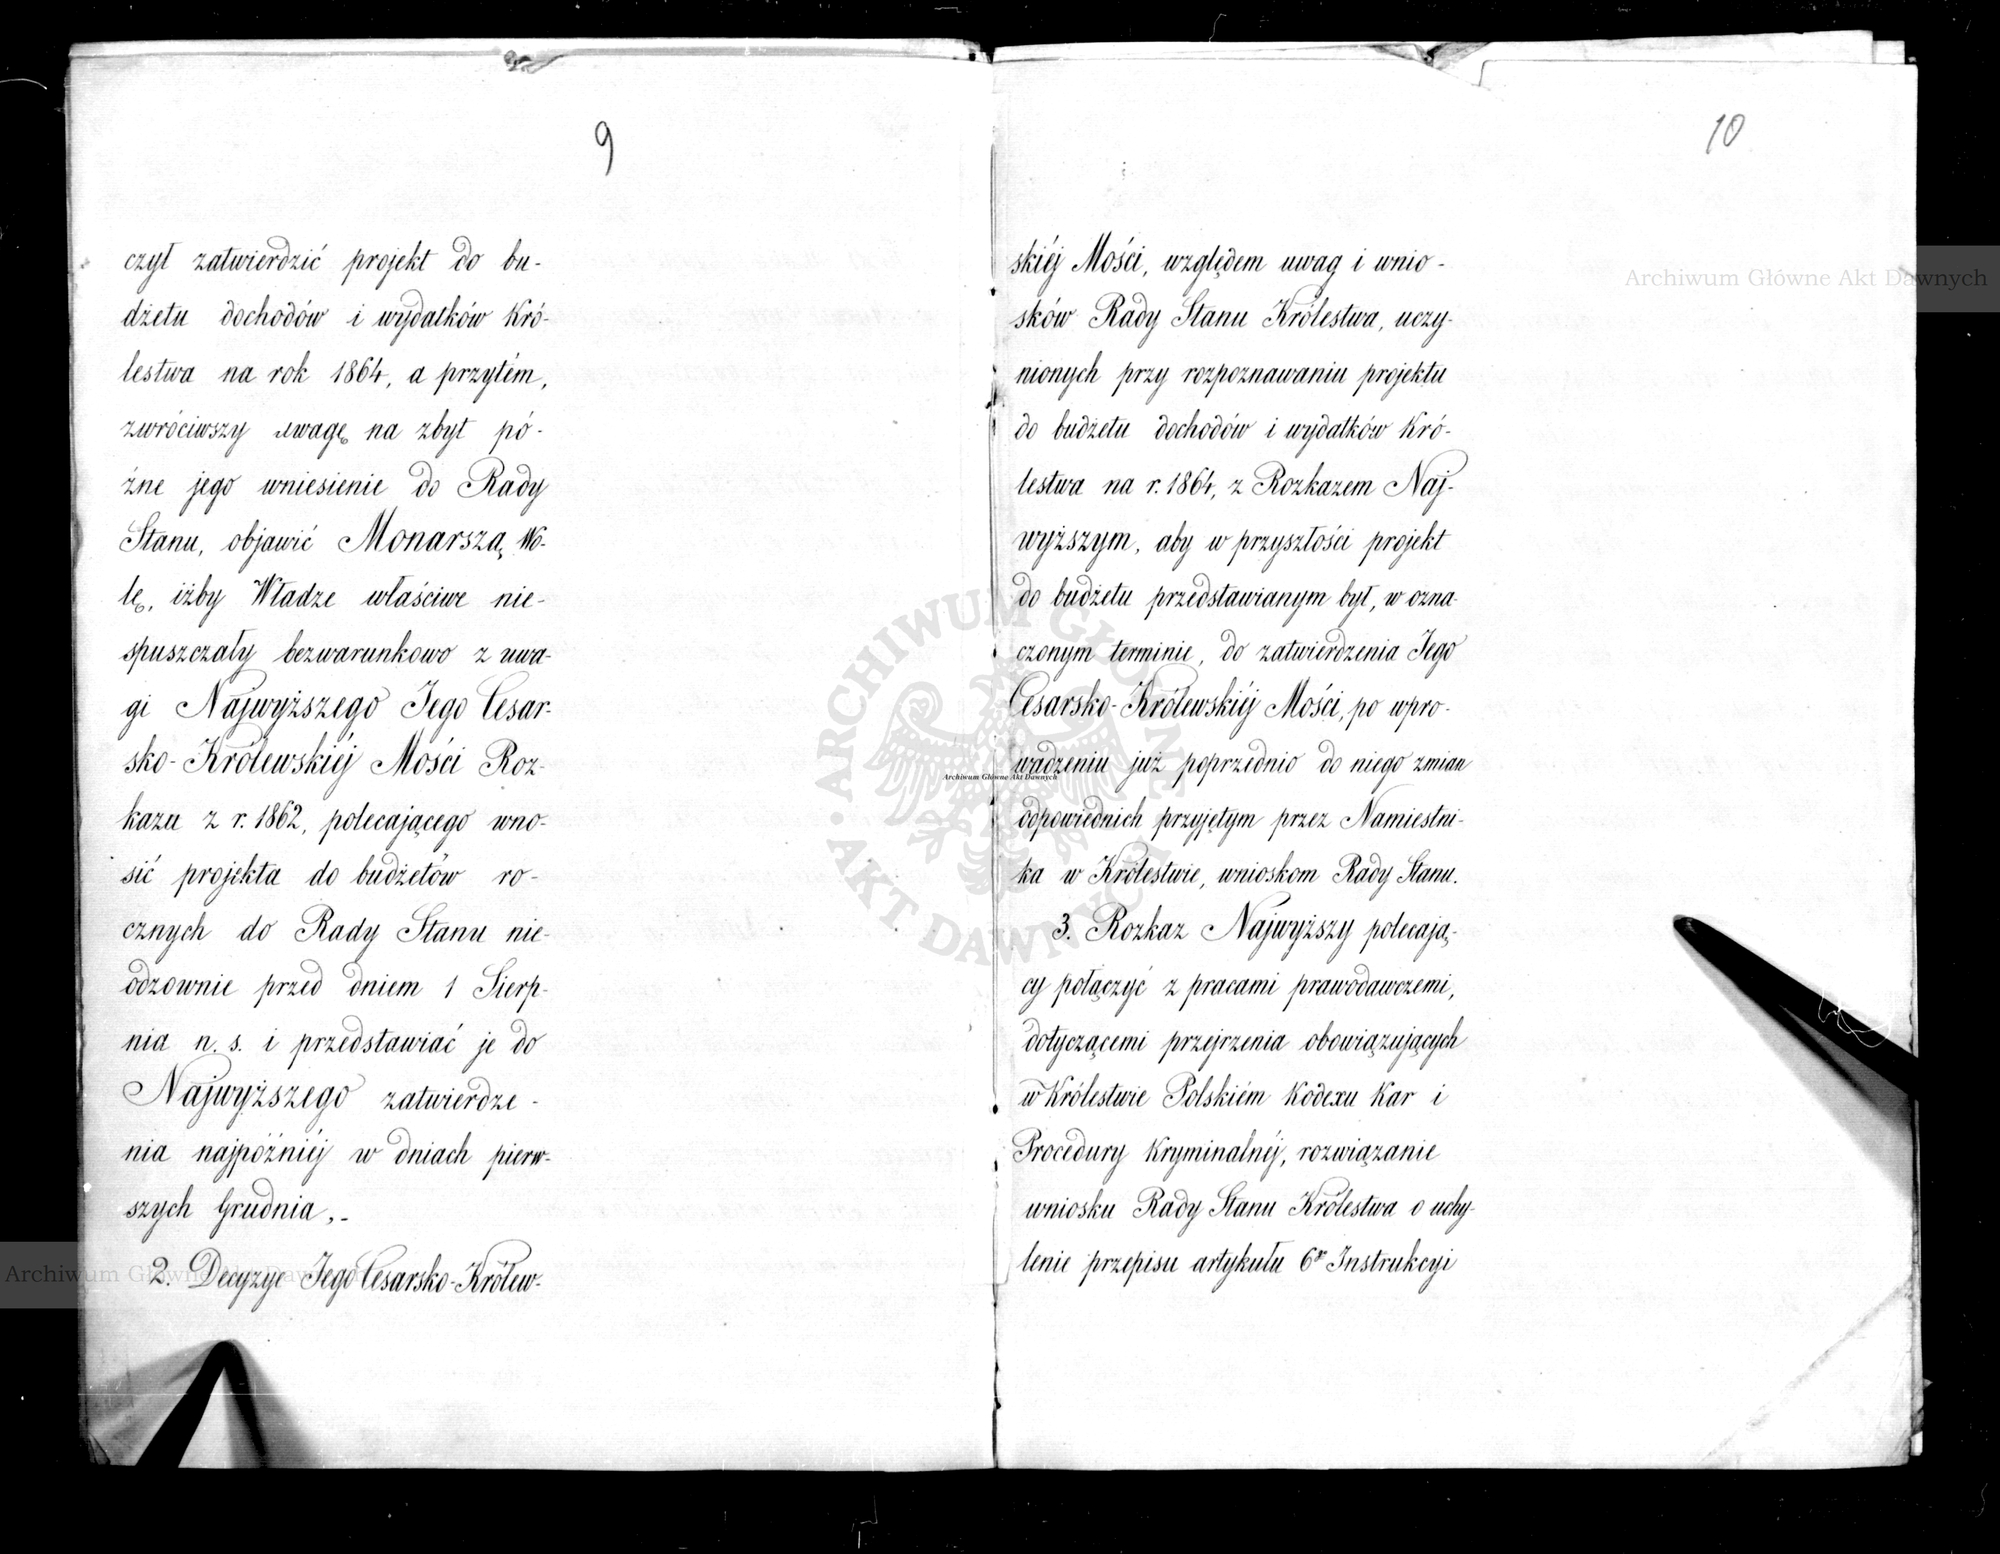 9
czył zatwierdzić projekt do bu-
dżetu dochodów i wydatków Kró-
lestwa na rok 1864, a przytém,
zwróciwszy uwagę na zbyt pó-
źne jego wniesienie do Rady
Stanu, objawić Monarszą Wo-
lę, iżby Władze właściwe nie-
spuszczały bezwarunkowo z uwa-
gi Najwyższego Jego Cesar-
sko-Królewskiéj Mości Roz-
kazu z r. 1862, polecającego wno-
sić projekta do budżetów ro-
cznych do Rady Stanu nie-
odzownie przed dniem 1 Sierp-
nia n. s. i przedstawiać je do
Najwyższego zatwierdze-
nia najpóźniéj w dniach pierw-
szych Grudnia,.-
2. Decyzye Jego Cesarsko-Królew-
10
skiéj Mości, względem uwag i wnio-
sków Rady Stanu Królestwa, uczy-
nionych przy rozpoznawaniu projektu
do budżetu dochodów i wydatków Kró-
lestwa na r. 1864, z Rozkazem Naj-
wyższym, aby w przyszłości projekt
do budżetu przedstawianym był, w ozna-
czonym terminie, do zatwierdzenia Jego
Cesarsko-Królewskiéj Mości, po wpro-
wadzeniu już poprzednio do niego zmian
odpowiednich przyjętym przez Namiestni-
ka w Królestwie, wnioskom Rady Stanu.
3. Rozkaz Najwyższy polecają-
cy połączyć z pracami prawodawczemi,
dotyczącemi przejrzenia obowiązujących
w Królestwie Polskiém Kodexu Kar i
Procedury Kryminalnéj, rozwiązanie
wniosku Rady Stanu Królestwa o uchy-
lenie przepisu artykułu 6go Instrukcyi
Archiwum Główne Akt Dawnych
Archiwum Główne Akt Dawnych
Archiwum Główne Akt Dawnych
ARCHIWUM GŁÓWNE AKT DAWNYCH